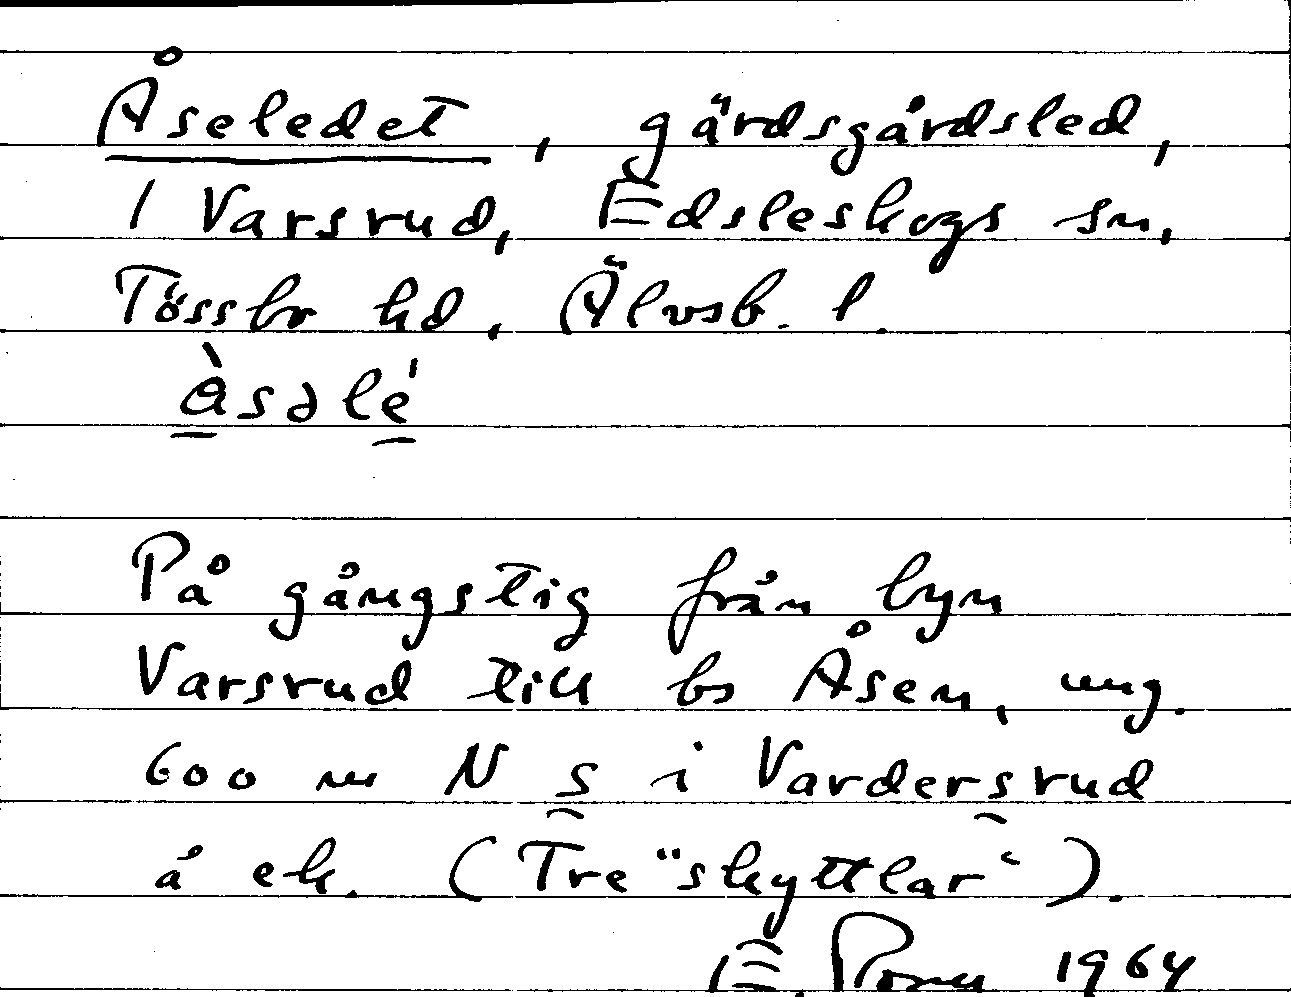 Åseledet, gärdsgårdsled,
i Varsrud, Edsleskogs sn,
Tössbo hd, Älvsb. l.
å̀səlé
På gångstig från byn
Varsrud till bs Åsen, ung.
600 m N s i Vardersrud
å ek. (Tre "skyttlar").
E. 1964